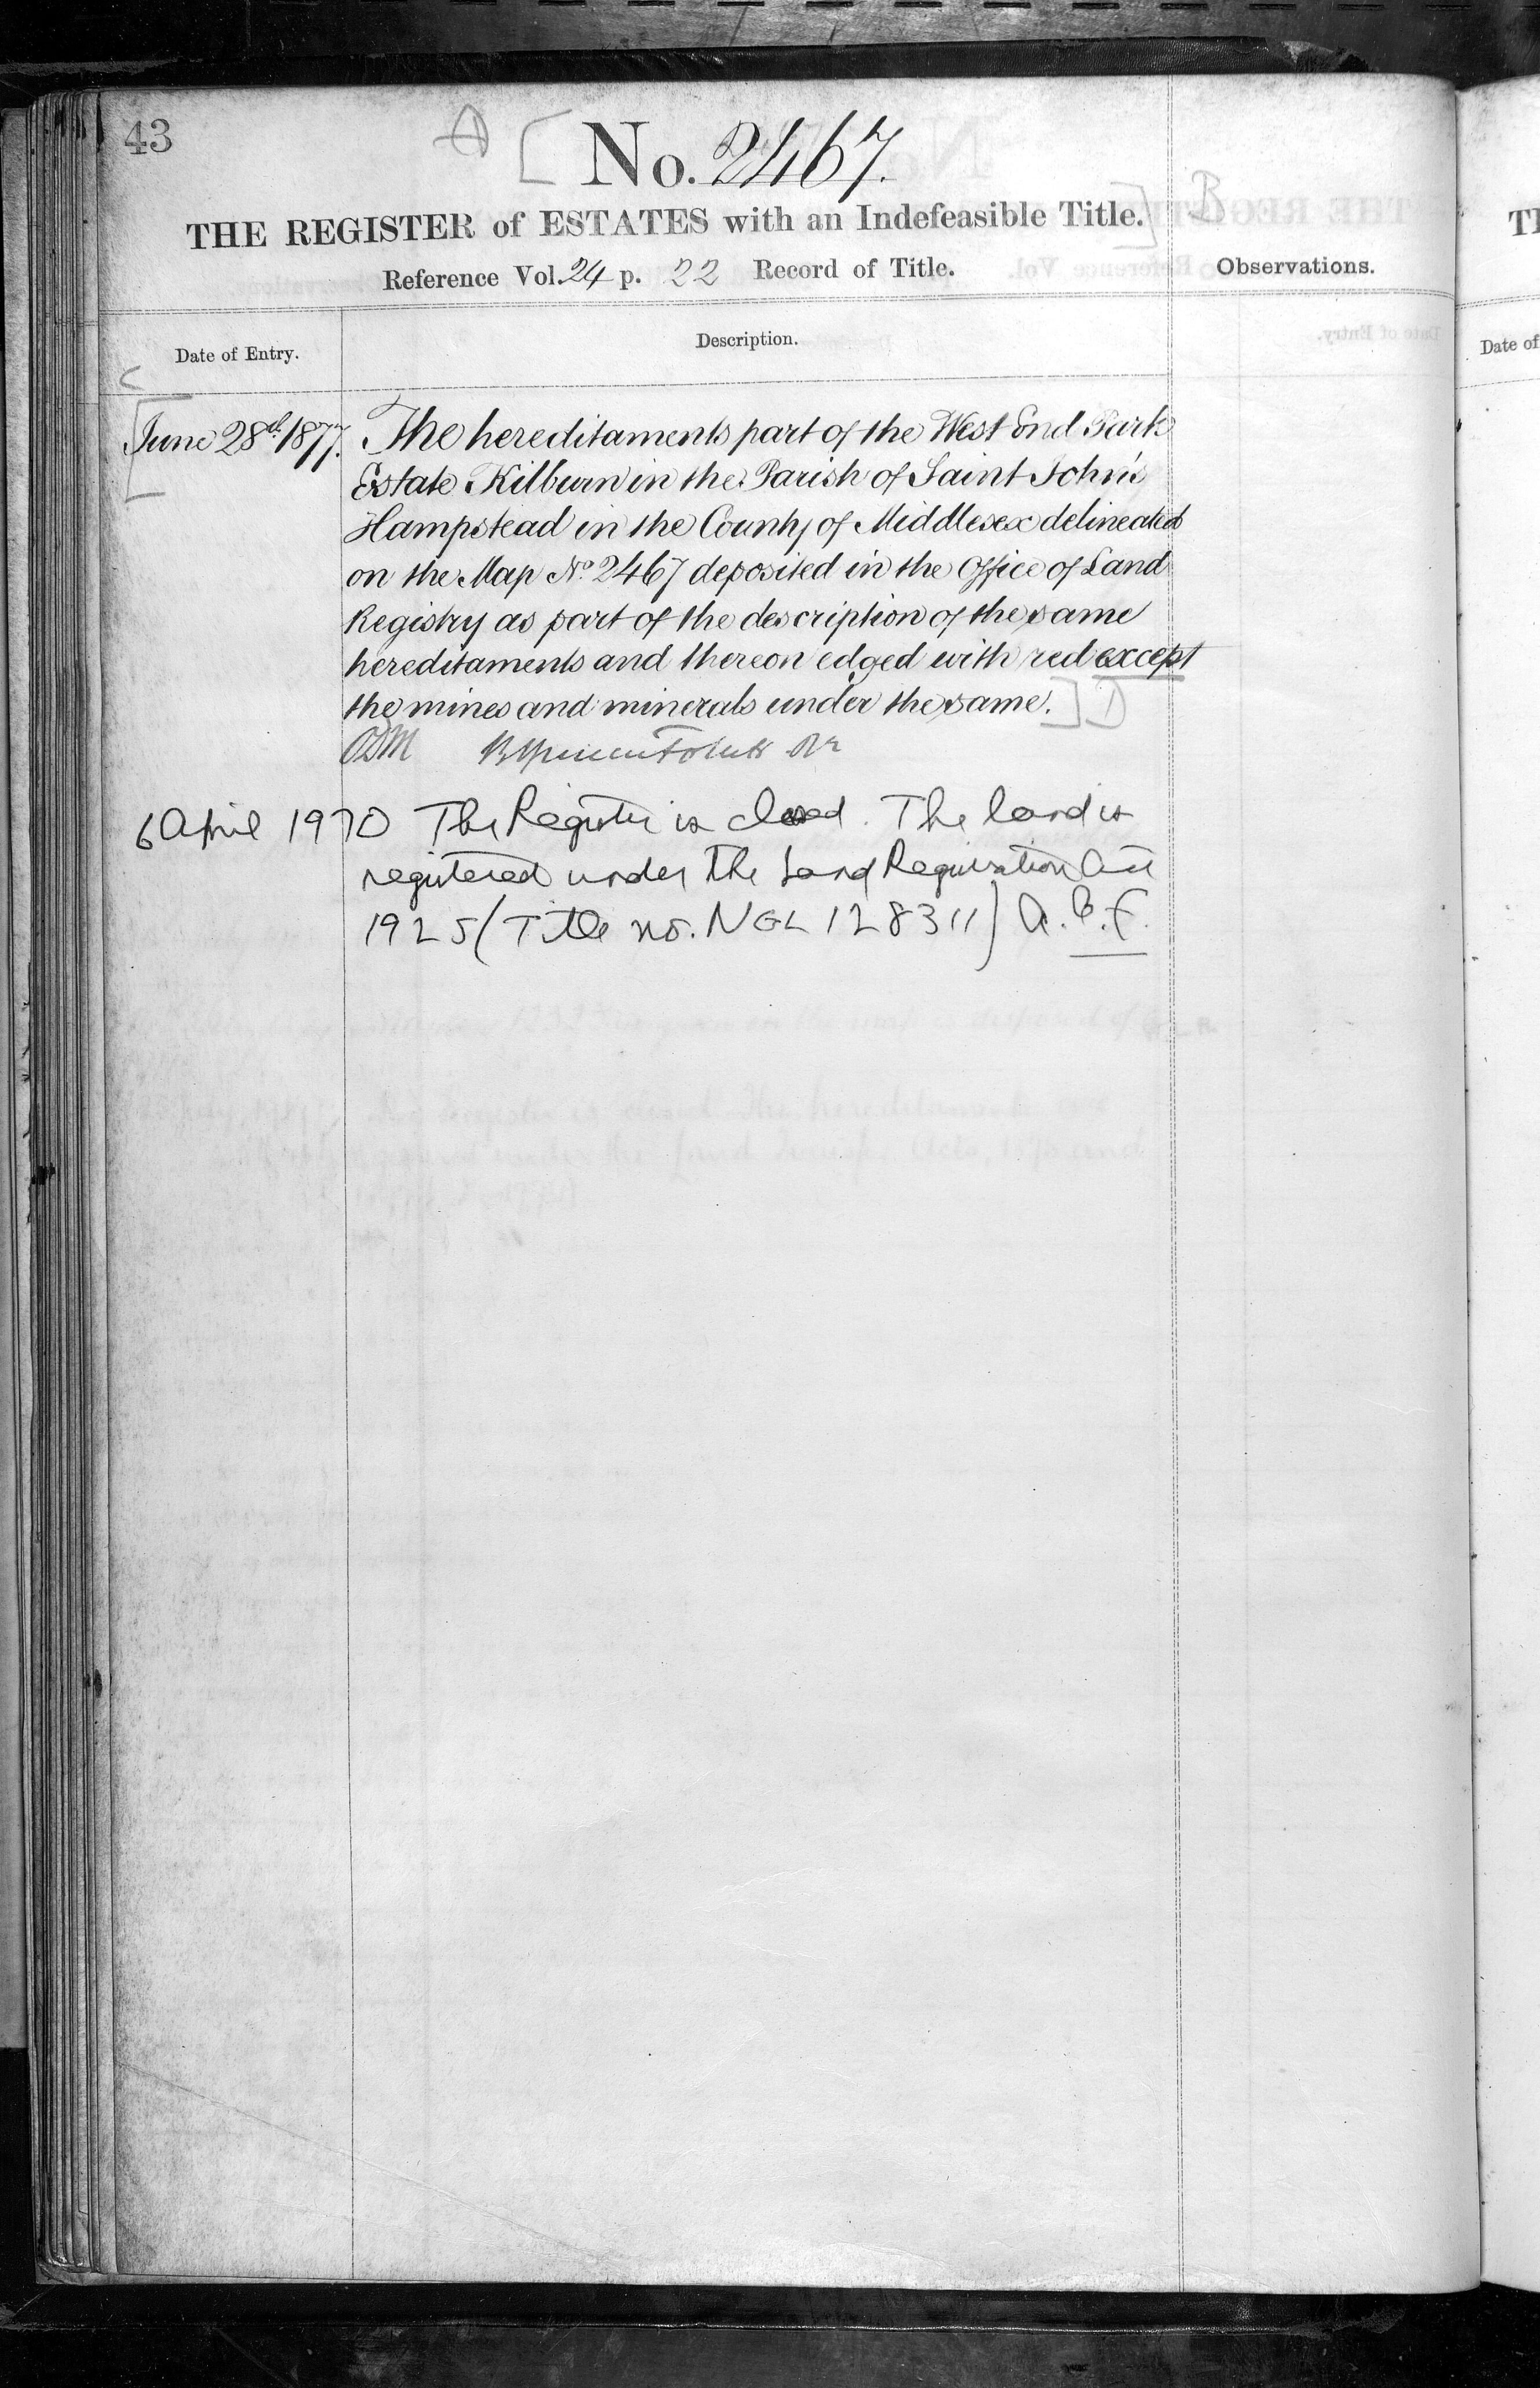 43
A [ No. 2467.
THE REGISTER of ESTATES with an Indefeasible Title. ] B
Reference Vol. 24 p. 22 Record of Title.
Observations.
Date of Entry.
Description.
C
[ June 28th 1877. The hereditaments part of the West End Park
Estate Kilburn in the Parish of Saint John's
Hampstead in the County of Middlesex delineated
on the Map No. 2467 deposited in the Office of Land
Registry as part of the description of the same
hereditaments and thereon edged with red except
the mines and minerals under the same. ] D
6 April 1970 The Register is closed. The land is
registered under the Land Registration Act
1925 (Title no. NGL 128311)
Date of